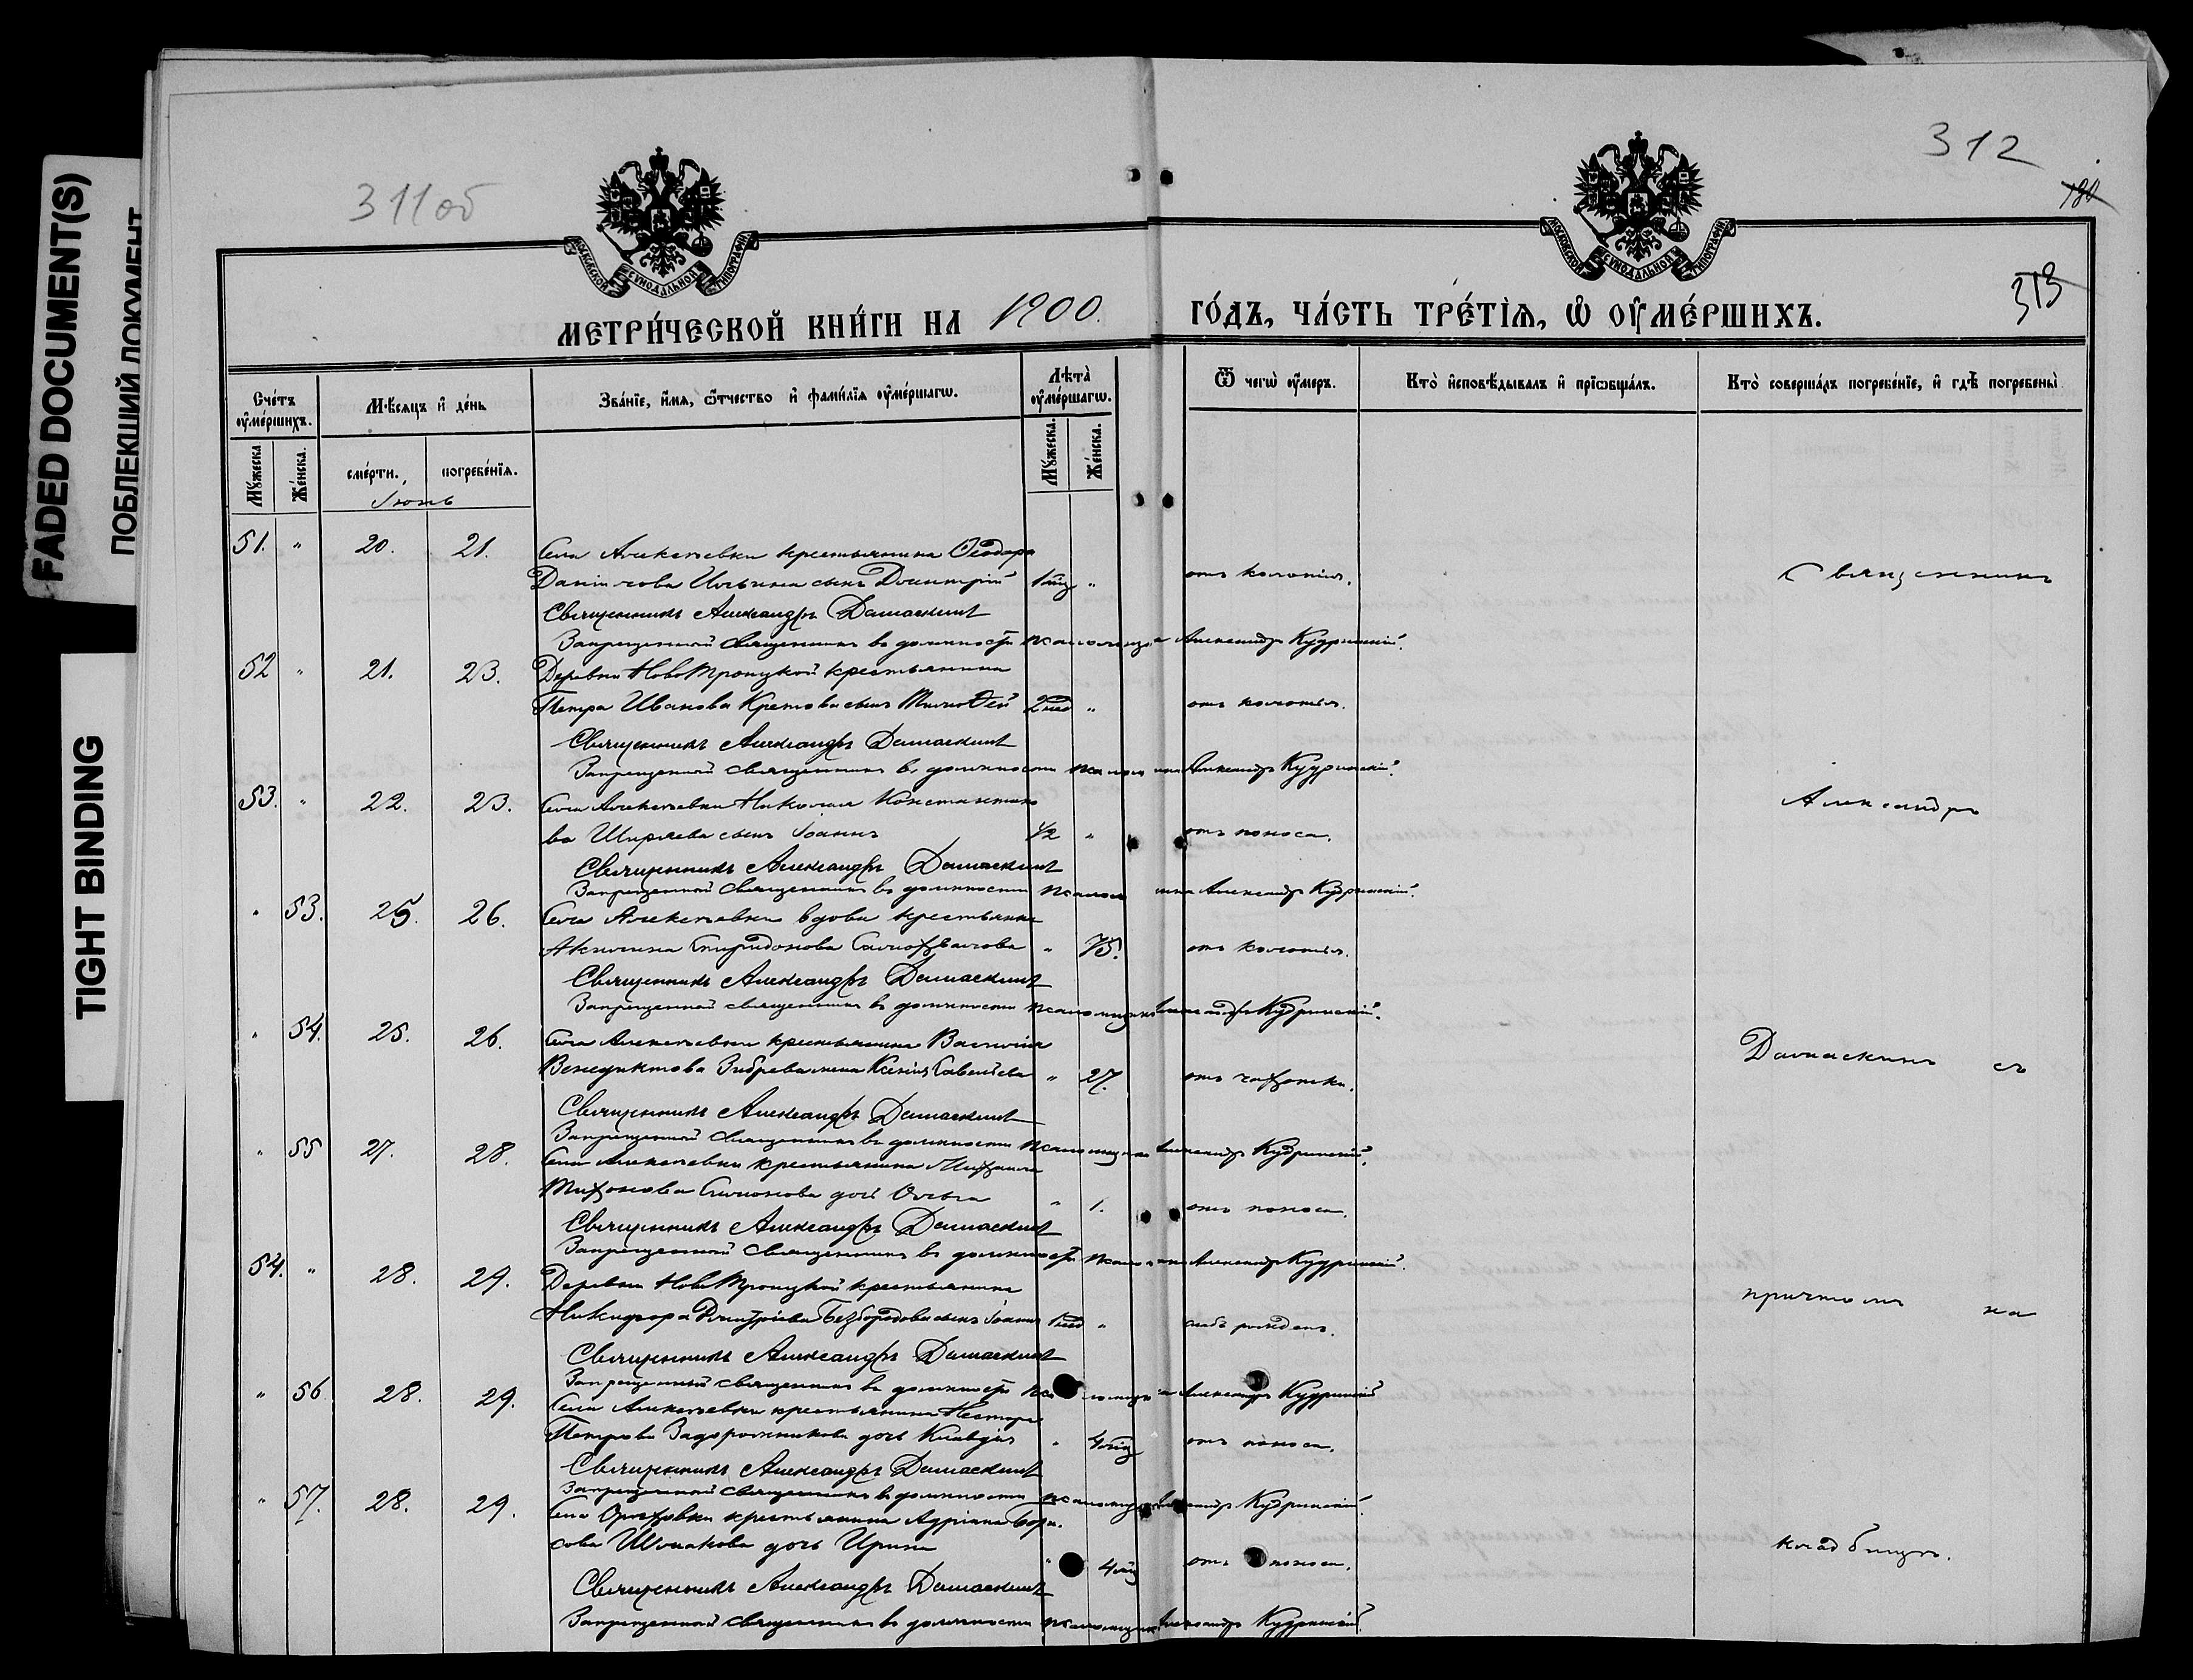 FADED DOCUMENT(S)
ПОБЛЕКШИЙ ДОКУМЕНТ
TIGHT BINDING
311об
312
180
313
МОСКОВСКОЙ СУНОДАЛЬНОЙ ТИПОГРАФІИ
МОСКОВСКОЙ СУНОДАЛЬНОЙ ТИПОГРАФІИ
МЕТРИ́ЧЕСКОЙ КНИ́ГИ НА 1900. ГО́ДЪ, ЧА́СТЬ ТРЕ́ТІѦ, Ѡ҆ ОУ҆МЕ́РШИХЪ.
Сче́тъ оу҆ме́ршихъ.
Мꙋ́жеска
Же́нска.
Мѣ́сѧцъ и҆ де́нь
сме́рти.
погребе́нїѧ.
Іюнь
Зва́нїе, и҆́мѧ, ѻ҆́тчество и҆ фамѝлїѧ оу҆ме́ршагѡ.
Лѣта̀ оу҆ме́ршагѡ.
Мꙋ́жеска.
Же́нска.
Ѿ чегѡ̀ оу҆́меръ.
Кто̀ и҆сповѣ́дывалъ и҆ прїѡбща́лъ.
Кто̀ соверша́лъ погребе́нїе, и҆ гдѣ̀ погребены̀
51. " 20. 21. Села Алексѣевки крестьянина Ѳеодора
Данилова Ильина сынъ Димитрій 1 мѣц " отъ колотія.
Священникъ Александръ Дамаскинъ
Запрещенной священникъ въ должности псаломщика Александръ Кудринскій.
52 " 21. 23. Деревни НовоТроицкой крестьянина
Петра Иванова Кретова сынъ Тимоѳей 2 нед " отъ колотія.
Священникъ Александръ Дамаскинъ
Запрещенной священникъ въ должности псаломщика Александръ Кудринскій.
53. " 22. 23. Села Алексѣевки Николая Константино
ва Ширяева сынъ Іоаннъ 1/2 " отъ поноса.
Священникъ Александръ Дамаскинъ
Запрещенной священникъ въ должности псаломщика Александръ Кудринскій.
" 53. 25. 26. Села Алексѣевки вдова крестьянка
Акилина Спиридонова " 75. отъ колотія.
Священникъ Александръ Дамаскинъ
Запрещенной священникъ въ должности псаломщика Александръ Кудринскій.
" 54. 25. 26. Села Алексѣевки крестьянина Василія
Венедиктова Зибрева жена Ксенія Савельева " 27. отъ чахотки.
Священникъ Александръ Дамаскинъ
Запрещенной священникъ въ должности псаломщика Александръ Кудринскій.
" 55 27. 28. Села Алексѣевки крестьянина Михаила
Тихонова Симонова дочь Ольга " 1. отъ поноса.
Священникъ Александръ Дамаскинъ
Запрещенной священникъ въ должности псаломщика Александръ Кудринскій.
54. " 28. 29. Деревни НовоТроицкой крестьянина
Никифора Димитріева Безбородова сынъ Іоаннъ 1 нед " слабъ рожденъ.
Священникъ Александръ Дамаскинъ
Запрещенный священникъ въ должности псаломщика Александръ Кудринскій
" 56 28. 29. Села Алексѣевки крестьянина Нестора
Петрова Задорожникова дочь Клавдія " 4 мѣц отъ поноса.
Священникъ Александръ Дамаскинъ
Запрещенной священникъ въ должности псаломщика Александръ Кудринскій.
" 57. 28. 29. Села Орѣховки крестьянина Адріана Бори-
сова Шмакова дочь Ирина " 4 мѣц отъ поноса.
Священникъ Александръ Дамаскинъ
Запрещенной священникъ въ должности псаломщика Александръ Кудринскій.
Священникъ
Александръ
Дамаскинъ съ
причтомъ на
кладбищѣ.